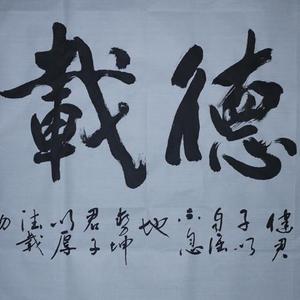 德載
健君
子以
自强
不息
地
势坤
君子
以厚
德载